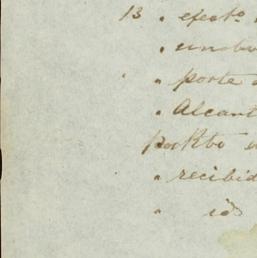 13 " efecto
"
" porte
" Alcant
por Rbo
" recibid
" id